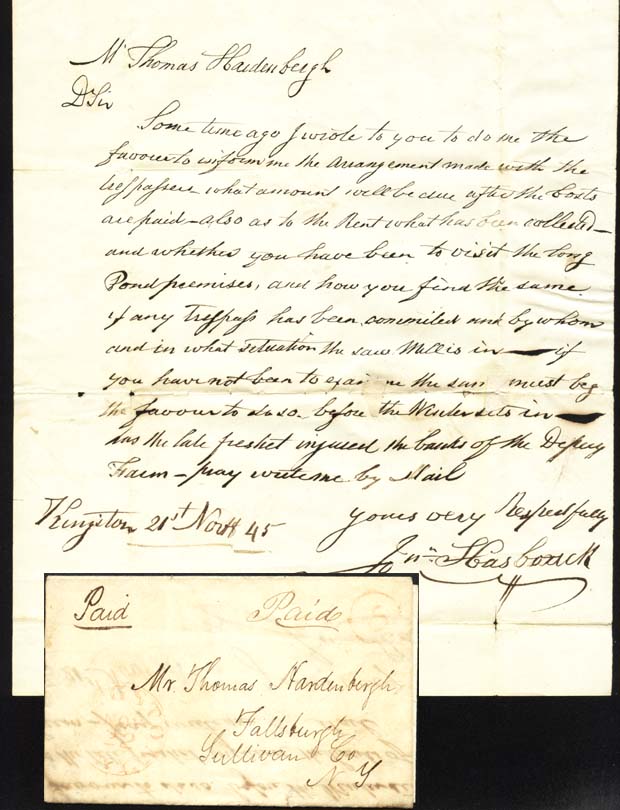 Mr Thomas Hardenbergh
D Sir
Some time ago I wrote to you to do me the
favour to inform me the Arrangement made with the
trespassers what amount will be due after the Costs
are paid – also as to the Rent what has been collected –
and whether you have been to visit the long
Pond premises, and how you find the same
if any Trespass has been commited and by whom
and in what situation the saw Mill is in — if
you have not been to exa ne the sam must beg
the favour to do so before the Winter sets in —
has the late freshet injured the banks of the
Farm – pray write me by Mail
Kingston 21st Novr 45
yours very Respectfully
Jon. Hasbrouck
Paid
Paid
Mr. Thomas Hardenbergh
Fallsburgh
Sullivan Co
N Y